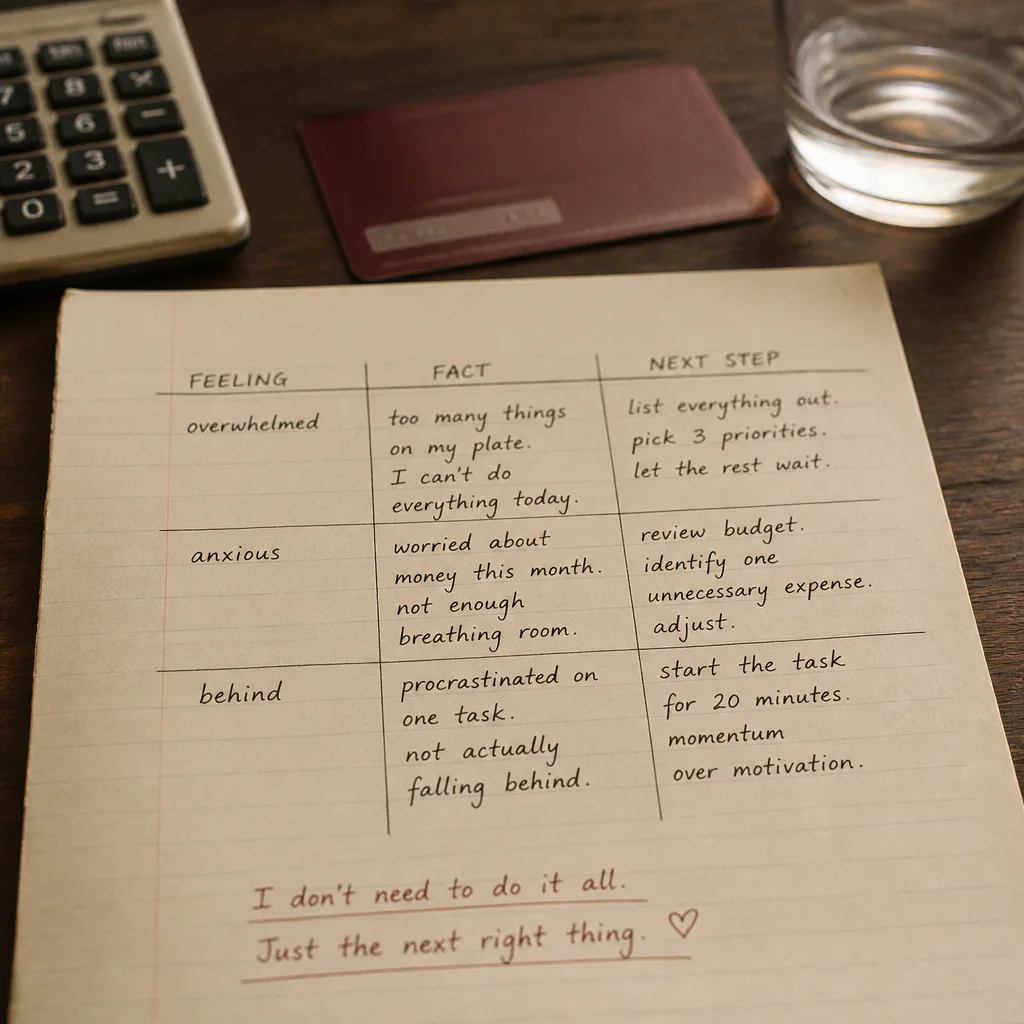 7
8
×
5
6
−
2
3
+
0
=
FEELING FACT NEXT STEP
overwhelmed
too many things
on my plate.
I can't do
everything today.
list everything out.
pick 3 priorities.
let the rest wait.
anxious
worried about
money this month.
not enough
breathing room.
review budget.
identify one
unnecessary expense.
adjust.
behind
procrastinated on
one task.
not actually
falling behind.
start the task
for 20 minutes.
momentum
over motivation.
I don't need to do it all.
Just the next right thing. ♡